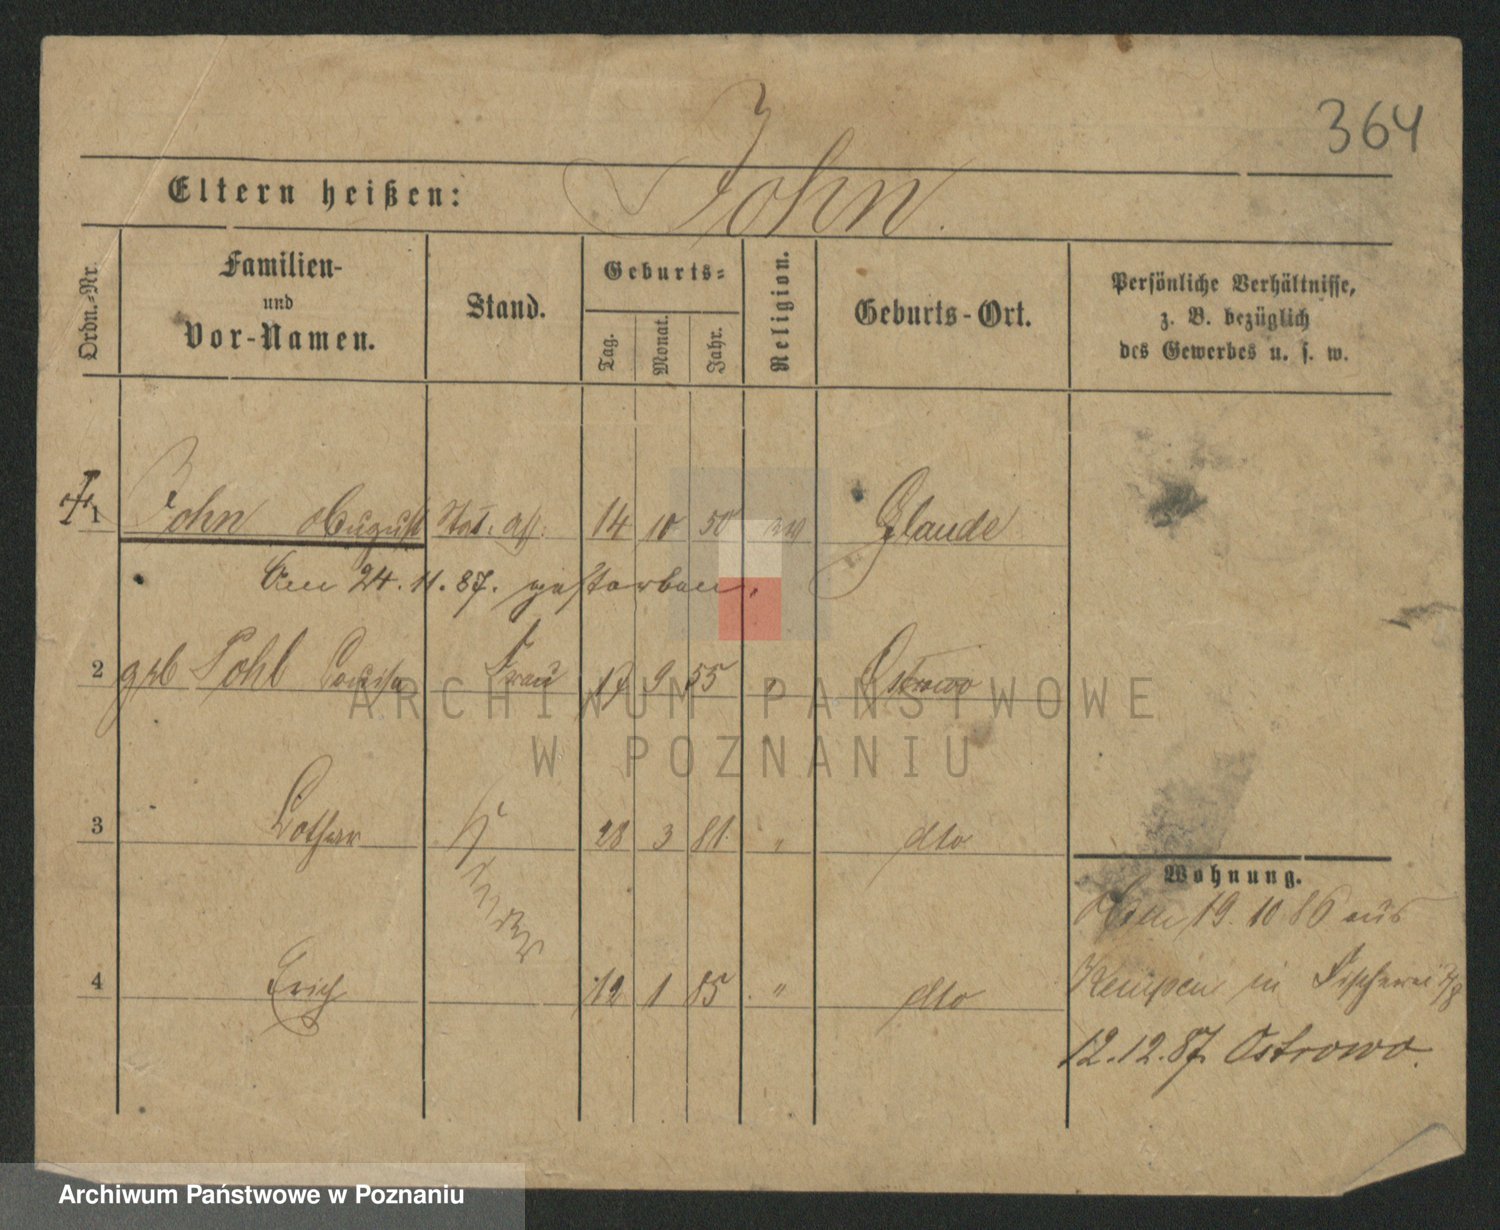 364
Eltern heißen: John.
Ordn.-Nr.
Familien-
und
Vor-Namen.
Stand.
Geburts-
Tag.
Monat.
Jahr.
Religion.
Geburts-Ort.
Persönliche Verhältnisse,
z. B. bezüglich
des Gewerbes u. s. w.
1 John August Stat. Ass. 14 10 50 ev Glaude
Am 24.11.87. gestorben.
2 geb Pohl Louisa Frau 17 9 55 " Ostrowo
3 Lothar Kinder 28 3 81. " dto
4 Erich 12 1 85 " dto
Wohnung.
19. 10 86 aus
Kempen in Fischerei
12.12.87. Ostrowo.
ARCHIWUM PAŃSTWOWE
W POZNANIU
Archiwum Państwowe w Poznaniu